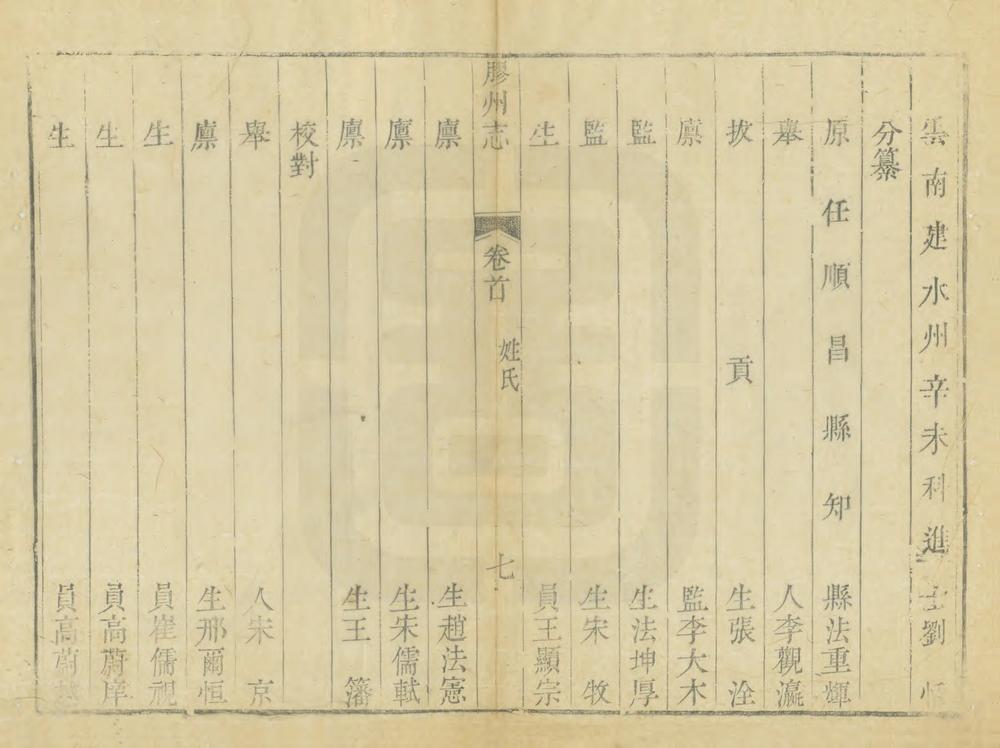 雲南建水州辛未科進士劉恒
分纂
原任順昌縣知縣法重輝
舉人李觀瀛
拔貢生張洤
廪監李大木
監生法坤厚
監生宋牧
生員王顯宗
膠州志 卷首 姓氏 七
廪生趙法憲
廪生朱儒軾
廪生王籓
校對
舉人宋京
廪生邢爾恒
生員崔儒視
生員高蔚
生員高蔚